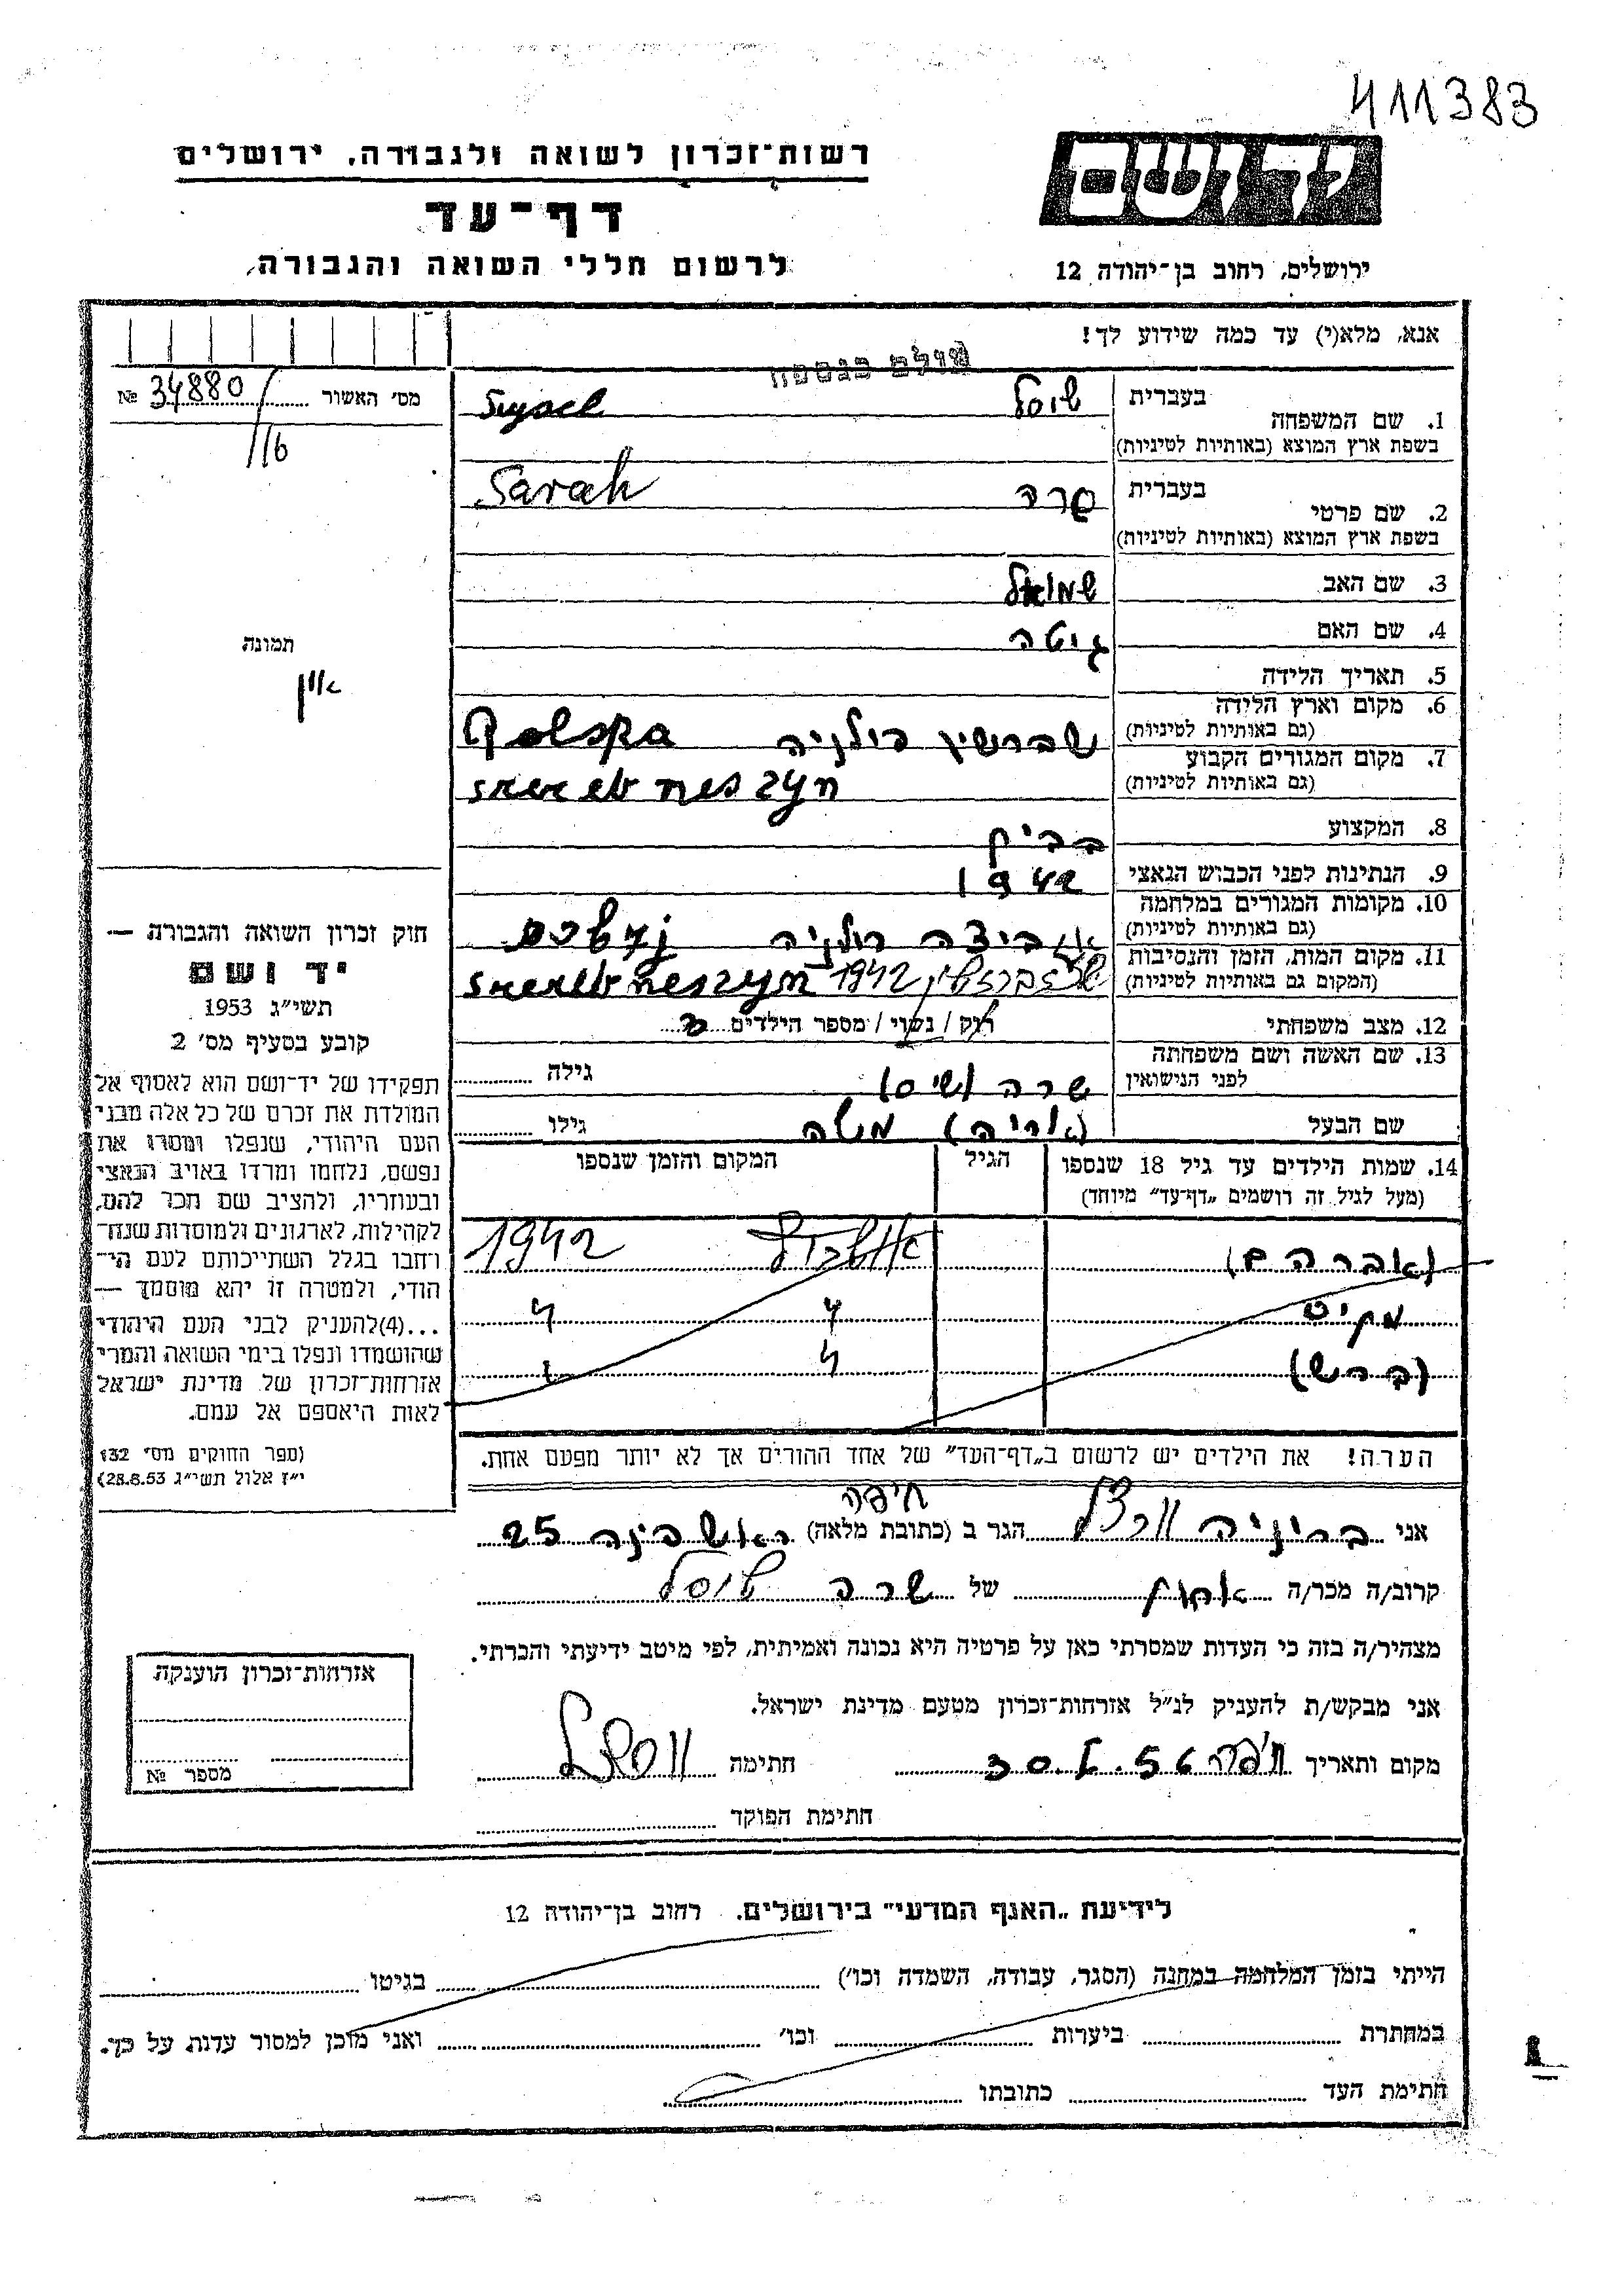 411383
רשות־זכרון לשואה ולגבורה, ירושלים
דף־עד
לרשום חללי השואה והגבורה,
יד ושם
ירושלים, רחוב בן־יהודה 12
אנא, מלא(י) עד כמה שידוע לך!
מס' האשור № 34880
116
תמונה
אין
1. שם המשפחה
בעברית שיסל
בשפת ארץ המוצא (באותיות לטיניות)
2. שם פרטי
בעברית שרה Sarah
בשפת ארץ המוצא (באותיות לטיניות)
3. שם האב שמואל
4. שם האם גיטה
5. תאריך הלידה
6. מקום וארץ הלידה
(גם באותיות לטיניות) שברשין פולניה Polska
7. מקום המגורים הקבוע
(גם באותיות לטיניות)
8. המקצוע
9. הנתינות לפני הכבוש הנאצי 1942
10. מקומות המגורים במלחמה
(גם באותיות לטיניות)
11. מקום המות, הזמן והנסיבות
(המקום גם באותיות לטיניות) 1942
12. מצב משפחתי רוק / נשוי / מספר הילדים 3
13. שם האשה ושם משפחתה
לפני הנישואין שרה גילה
שם הבעל משה גילו
14. שמות הילדים עד גיל 18 שנספו
(מעל לגיל זה רושמים „דף־עד" מיוחד)
הגיל
המקום והזמן שנספו
(אברהם) 1942
הערה! את הילדים יש לרשום ב„דף־העד" של אחד ההורים אך לא יותר מפעם אחת.
חוק זכרון השואה והגבורה —
יד ושם
תשי"ג 1953
קובע בסעיף מס' 2
תפקידו של יד־ושם הוא לאסוף אל
המולדת את זכרם של כל אלה מבני
העם היהודי, שנפלו ומסרו את
נפשם, נלחמו ומרדו באויב הנאצי
ובעוזריו, ולהציב שם וזכר להם,
לקהילות, לארגונים ולמוסדות שנח־
רחבו בגלל השתייכותם לעם הי־
הודי, ולמטרה זו יהא מוסמך —
...(4)להעניק לבני העם היהודי
שהושמדו ונפלו בימי השואה והמרי
אזרחות־זכרון של מדינת ישראל
לאות היאספם אל עמם.
(ספר החוקים מס' 132
י"ז אלול תשי"ג 28.8.53)
חיפה
אני ברוניה הגר ב (כתובת מלאה) ראש פינה 25
קרוב/ה מכר/ה אחות של שרה שיסל
מצהיר/ה בזה כי העדות שמסרתי כאן על פרטיה היא נכונה ואמיתית, לפי מיטב ידיעתי והכרתי.
אני מבקש/ת להעניק לנ"ל אזרחות־זכרון מטעם מדינת ישראל.
מקום ותאריך חיפה חתימה
חתימת הפוקד
אזרחות־זכרון הוענקה
מספר №
לידיעת „האגף המדעי" בירושלים. רחוב בן־יהודה 12
הייתי בזמן המלחמה במחנה (הסגר, עבודה, השמדה וכו') בגיטו
במחתרת ביערות וכו' ואני מוכן למסור עדות על כך.
חתימת העד כתובתו